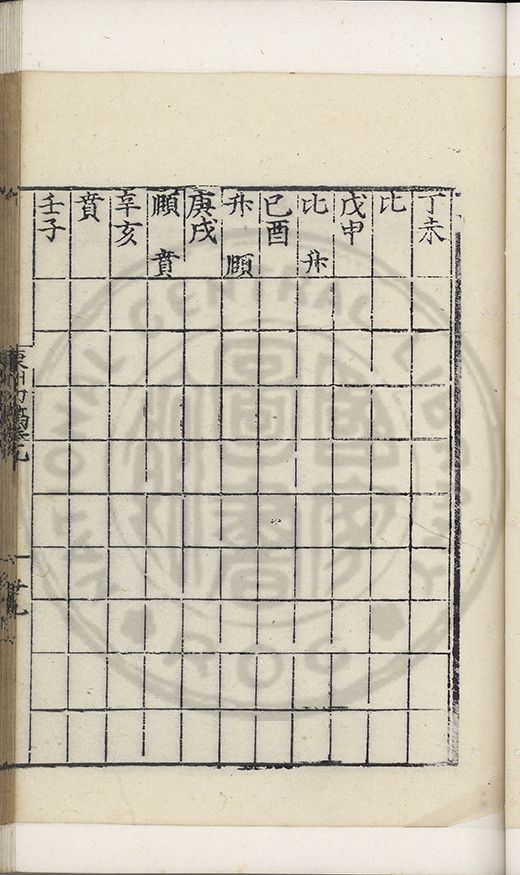 丁未
比
戊申
比 升
己酉
升 頤
庚戌
頤 賁
辛亥
賁
壬子